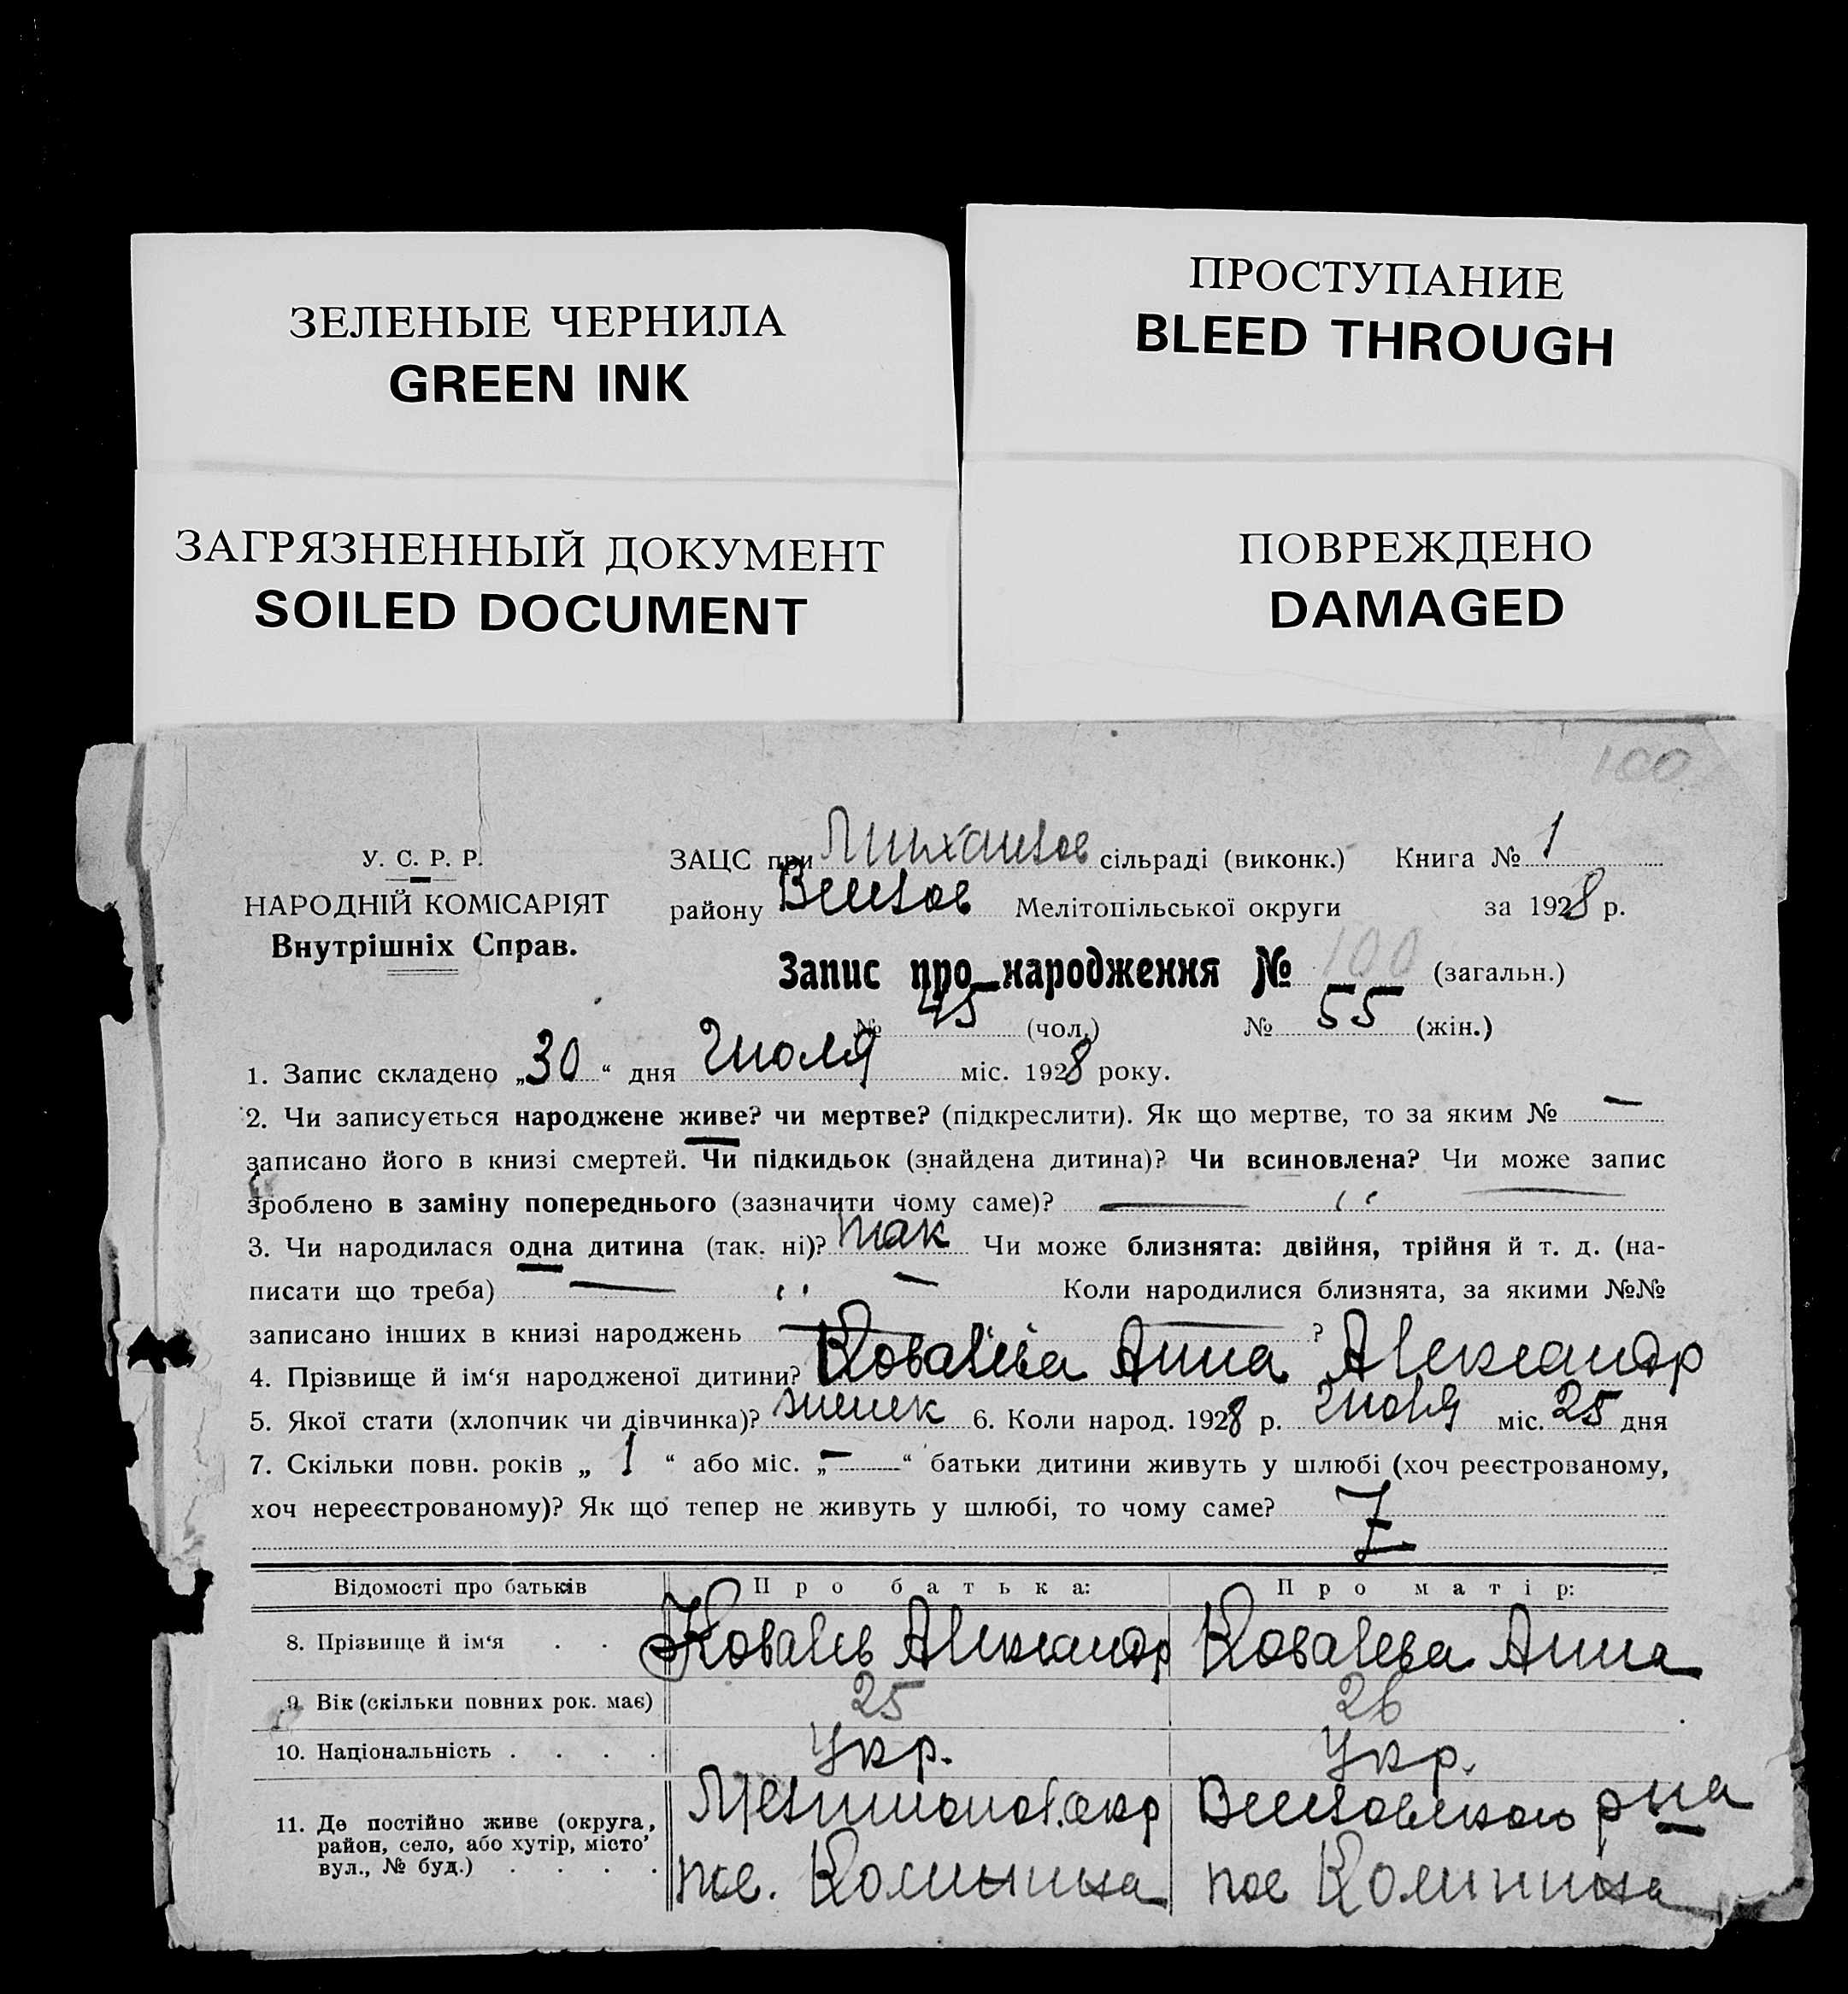 ЗЕЛЕНЫЕ ЧЕРНИЛА
GREEN INK
ПРОСТУПАНИЕ
BLEED THROUGH
ЗАГРЯЗНЕННЫЙ ДОКУМЕНТ
SOILED DOCUMENT
ПОВРЕЖДЕНО
DAMAGED
100
У. С. Р. Р.
НАРОДНІЙ КОМІСАРІЯТ
Внутрішніх Справ.
ЗАЦС при сільраді (виконк.) Книга № 1
району Веселов Мелітопільської округи за 1928 р.
Запис про народження № 100 (загальн.)
№ 45 (чол.) № 55 (жін.)
1. Запис складено „30“ дня Июля міс. 1928 року.
2. Чи записується народжене живе? чи мертве? (підкреслити). Як що мертве, то за яким № —
записано його в книзі смертей. Чи підкидьок (знайдена дитина)? Чи всиновлена? Чи може запис
зроблено в заміну попереднього (зазначити чому саме)? — „ —
3. Чи народилася одна дитина (так. ні)? так Чи може близнята: двійня, трійня й т. д. (на-
писати що треба) — „ — Коли народилися близнята, за якими №№
записано інших в книзі народжень — „ — ?
4. Прізвище й ім‘я народженої дитини? Ковалева Анна Александр
5. Якої стати (хлопчик чи дівчинка)? 6. Коли народ. 1928 р. Июля міс. 25 дня
7. Скільки повн. років „ 1 “ або міс. „—“ батьки дитини живуть у шлюбі (хоч реєстрованому,
хоч нереєстрованому)? Як що тепер не живуть у шлюбі, то чому саме?
Відомості про батьків Про батька: Про матір:
8. Прізвище й ім‘я . . Ковалев Александр Ковалева Анна
9. Вік (скільки повних рок. має) 25 26
10. Національність . . . . Укр. Укр.
11. Де постійно живе (округа, район, село, або хутір, місто’ вул., № буд.) . . . .
Мелитопол. окр Веселовского р на
пос. Калинина пос Калинина